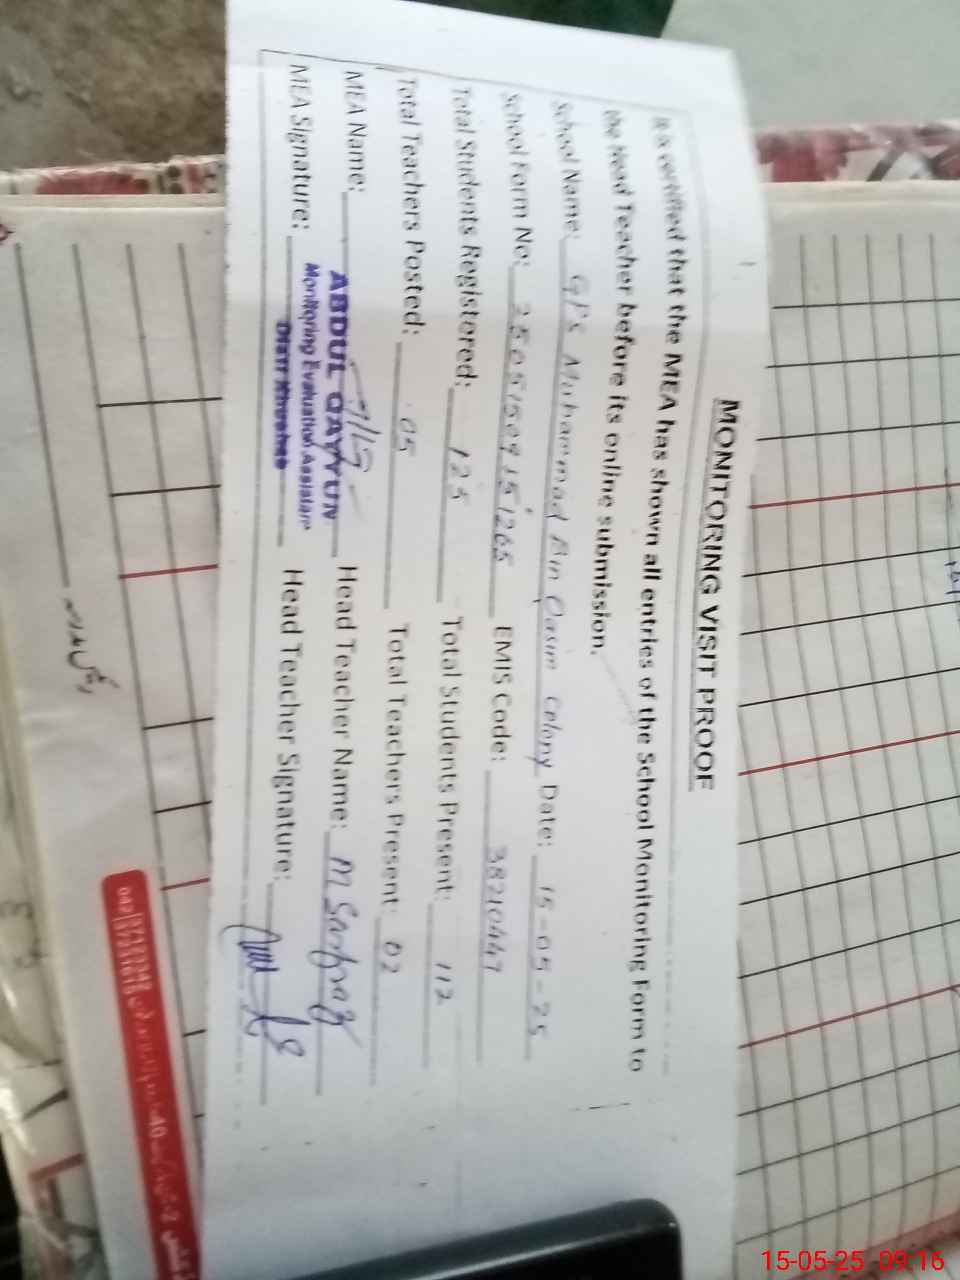 MONITORING VISIT PROOF
It is certified that the MEA has shown all entries of the School Monitoring Form to
the Head Teacher before its online submission.
School Name: GPS Muhammad Bin Qasim Colony Date: 15-05-25
School Form No: 25051509151265 EMIS Code: 38210447
Total Students Registered: 125 Total Students Present: 112
Total Teachers Posted: 05 Total Teachers Present: 02
MEA Name: ABDUL QAYYUN Head Teacher Name: M
Monitoring Evaluation Assistant
MEA Signature: Distt Head Teacher Signature:
15-05-25 09:16